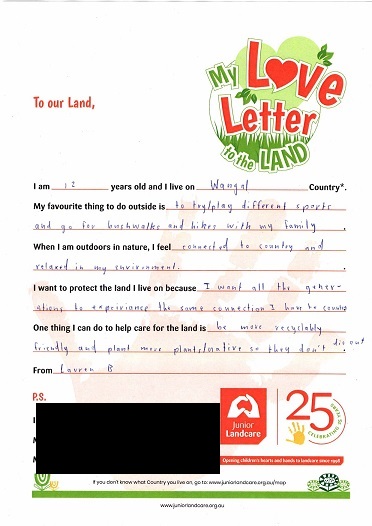 My
Love
Letter
to the LAND
To our Land,
I am 12 years old and I live on Wangal Country*.
My favourite thing to do outside is to try/play different sports
and go for bushwalks and hikes with my family.
When I am outdoors in nature, I feel connected to country and
relaxed in my environment.
I want to protect the land I live on because I want all the gener-
ations to expeiriance the same connection I have to country
One thing I can do to help care for the land is be more recyclably
friendly and plant more plants/native so they don't die out.
From Lauren B
P.S.
Junior
Landcare
25 YEARS
CELEBRATING
Opening children's hearts and hands to landcare since 1998
If you don't know what Country you live on, go to: www.juniorlandcare.org.au/map
www.juniorlandcare.org.au